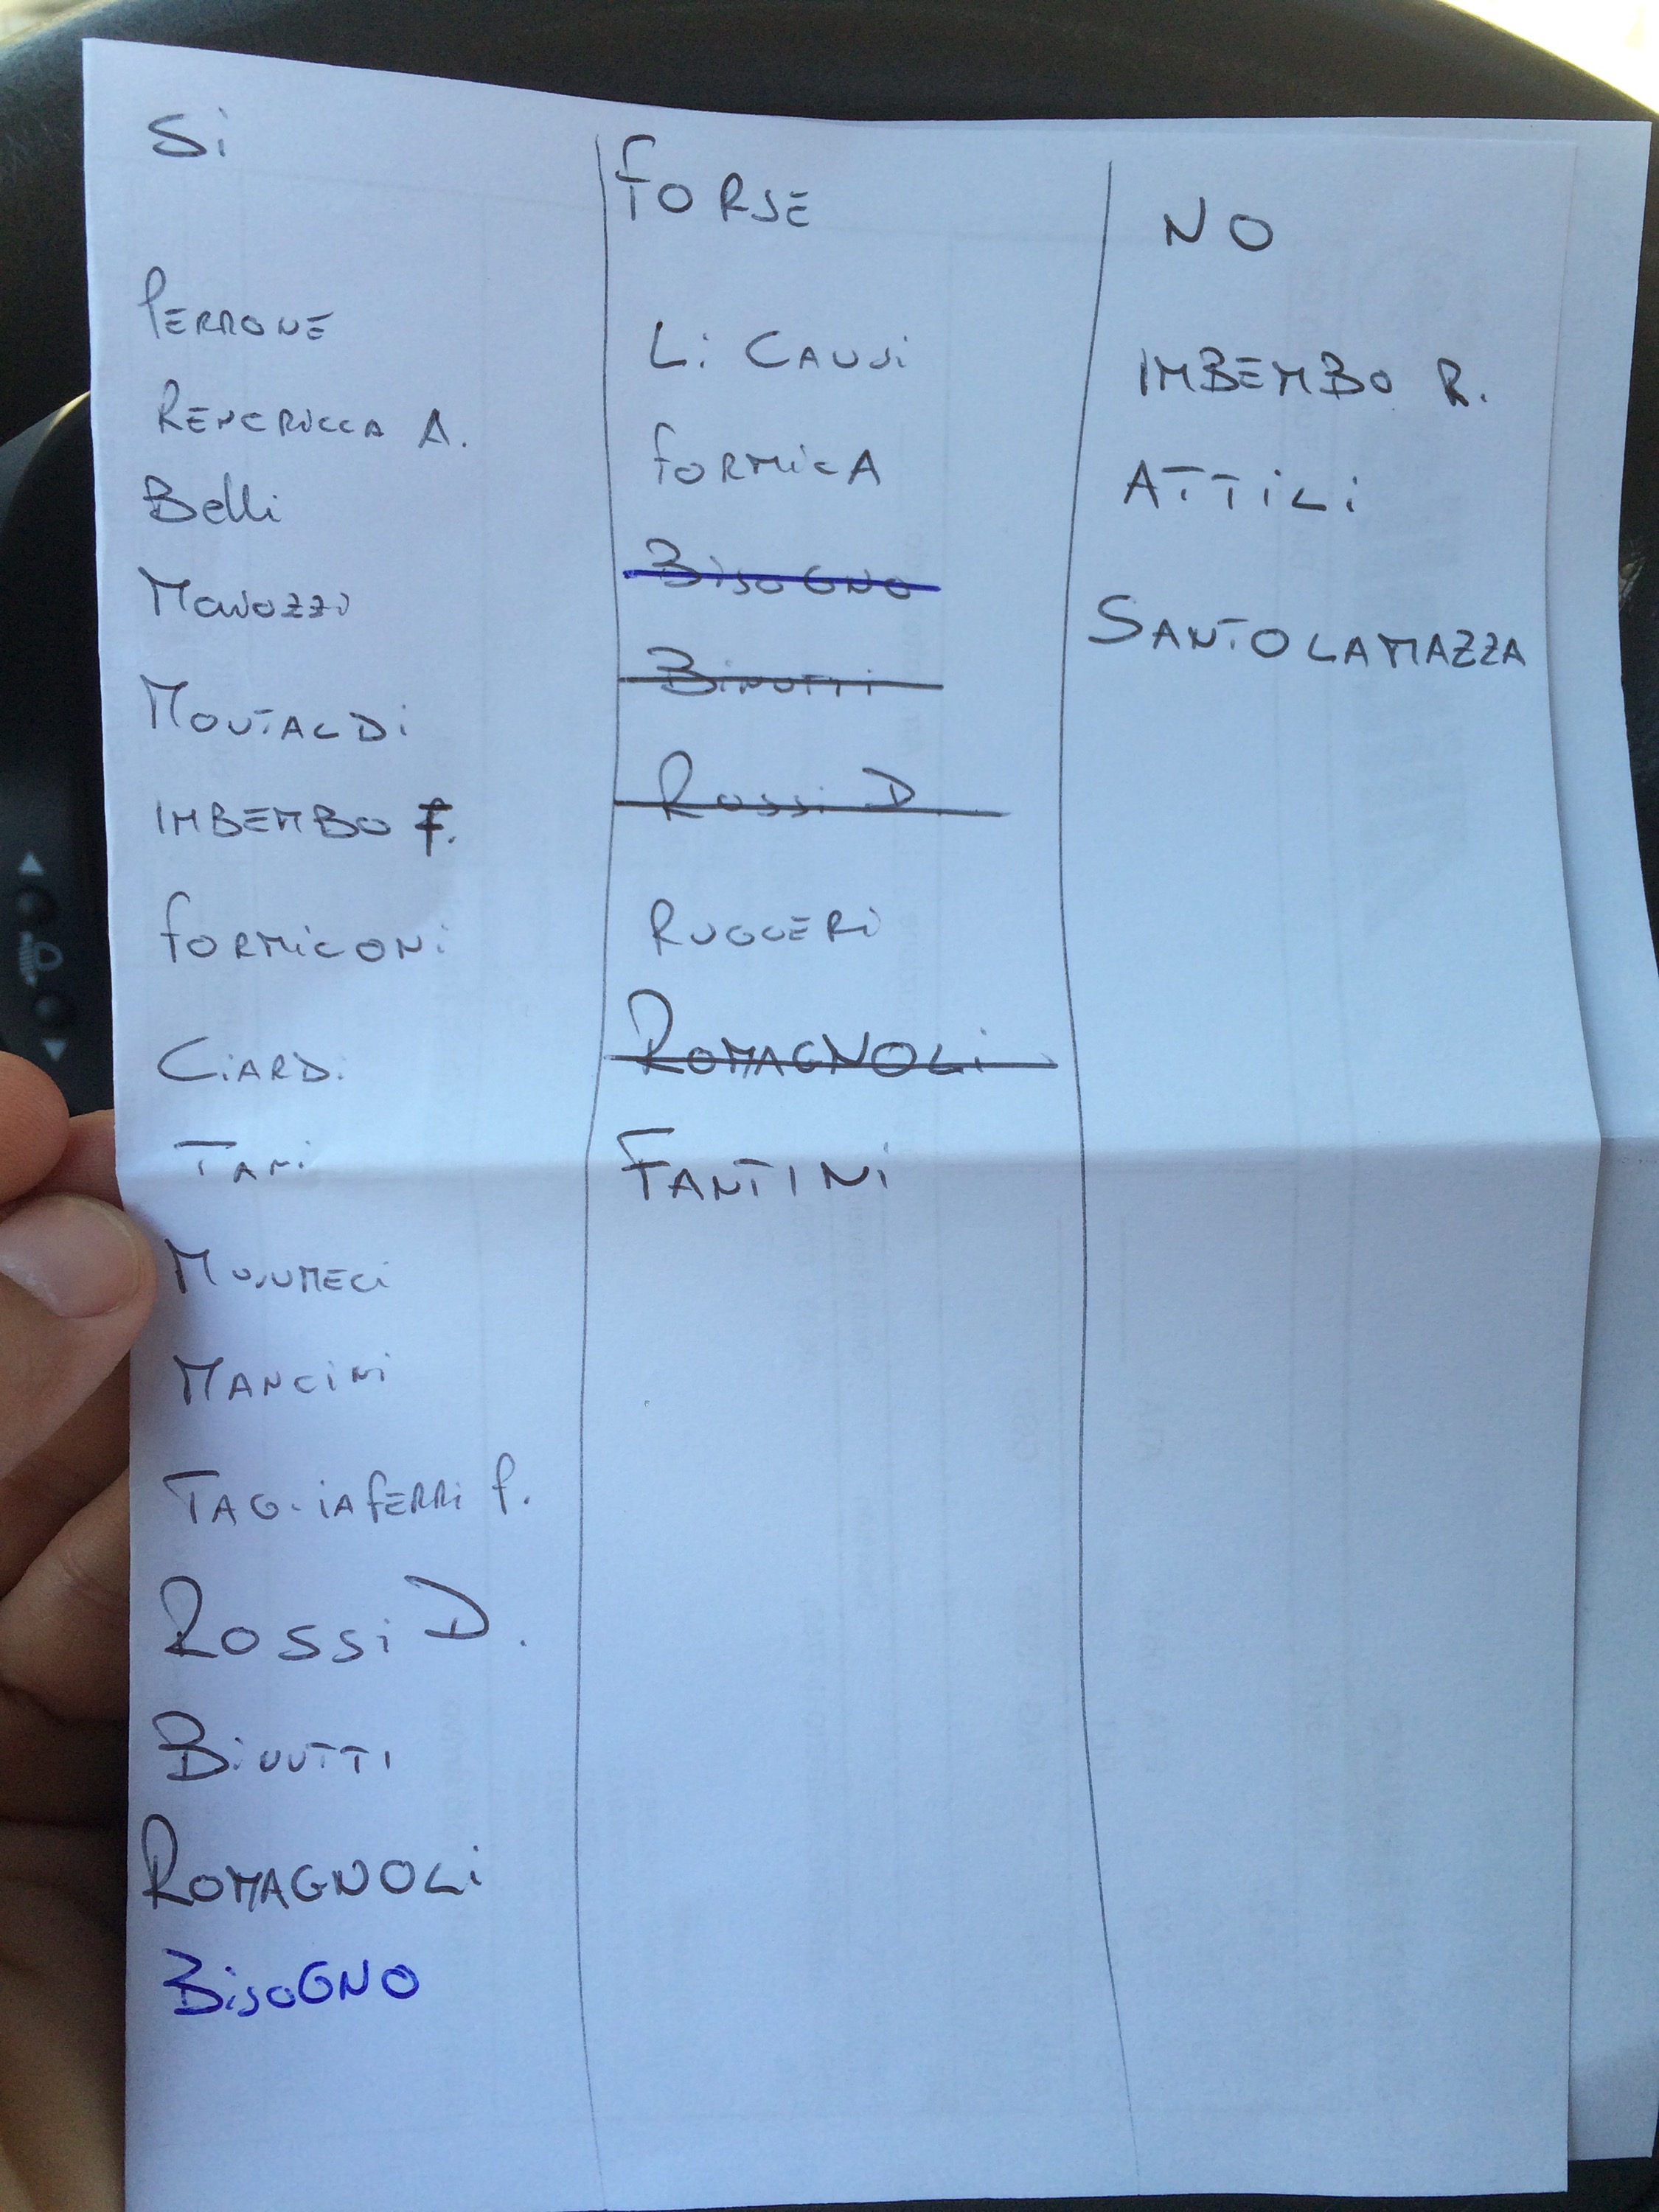 Si
PERRONE
RENCRICCA A.
Belli
MONTALDI
IMBEMBO F.
FORMICONI
CIARDI
TANI
MUSUMECI
MANCINI
TAGLIAFERRI F.
ROSSI D.
BINUTTI
ROMAGNOLI
BISOGNO
FORSE
Li CAUSI
FORMICA
BISOGNO
BINUTTI
ROSSI D
RUGGERI
ROMAGNOLI
FANTINI
NO
IMBEMBO R.
ATTILI
SANTOLAMAZZA